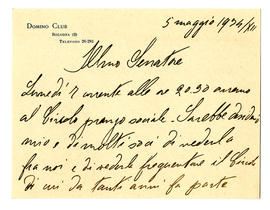 Domino Club
Bologna (8)
Telefono 26-292
5 maggio 1934/XII
Illmo Senatore
Lunedì 7 corrente alle ore 20.30 avremo
al Circolo pranzo sociale. Sarebbe desiderio
mio, e di molti soci di vederla
fra noi e di vederla frequentare il Circolo
di cui da tanti anni fa parte